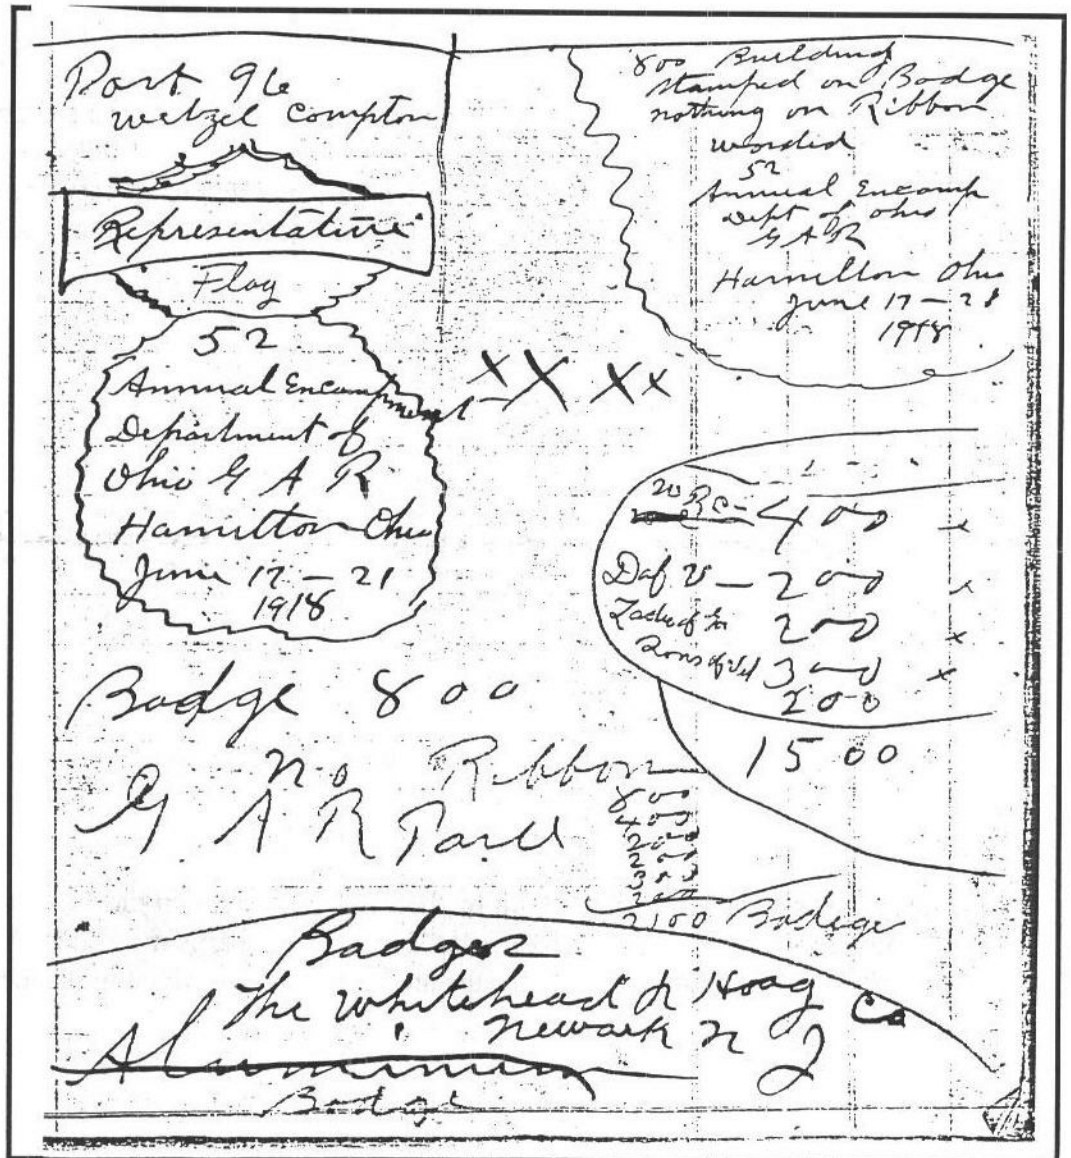 Post 96
Wetzel Compton
Representative
Flag
52
Annual Encampment
Department of
Ohio G A R
Hamilton Ohio
June 17 - 21
1918
800 Building
stamped on Badge
nothing on Ribbon
worded
52
Annual Encamp
Dept of Ohio
G A R
Hamilton Ohio
June 17 - 21
1918
XX XX
W R C - 400 x
D of V - 200 x
Ladies of 200 x
Sons of Vet 300 x
200
1500
Badge 800
no Ribbon
G A R
800
400
200
200
300
200
2100 Badge
Badges
The Whitehead & Hoag Co
Newark N J
Aluminum
Badge